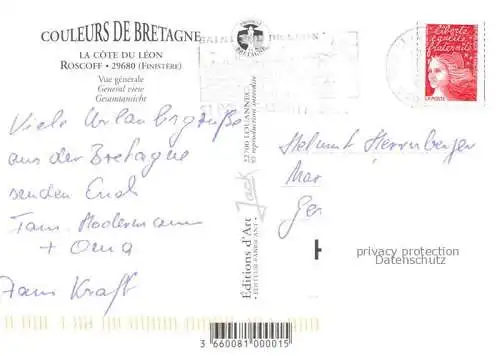 COULEURS DE BRETAGNE
LA CÔTE DU LÉON
ROSCOFF • 29680 (FINISTÈRE)
Vue générale
General view
Gesamtansicht
Viele Urlaubsgrüße
aus der Bretagne
senden Euch
Fam. Modermann
+ Oma
Fam. Kraft
BRETAGNE
SAINT
22700 LOUANNEC
reproduction interdite
Jack
Éditions d'Art
• EDITEUR FABRICANT •
liberté
égalité
fraternité
LA POSTE
Helmut Herrnberger
Mar
Ger
privacy protection
Datenschutz
3 660081 000015